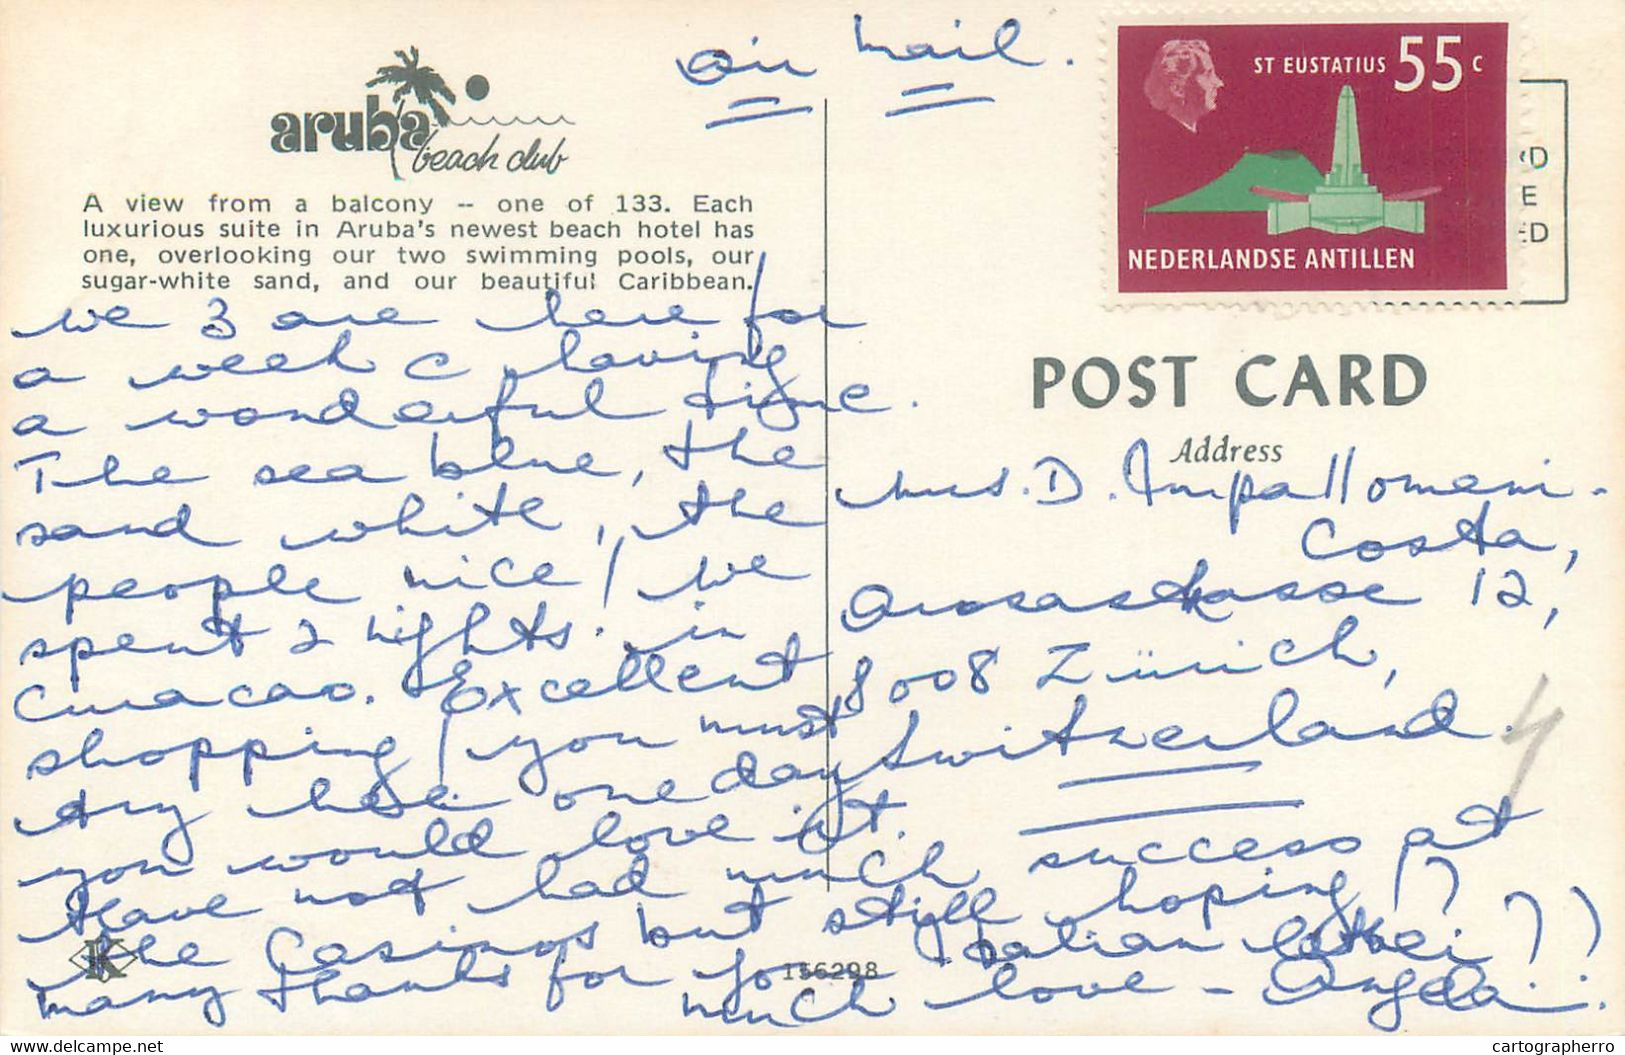 air mail.
aruba
beach club
A view from a balcony -- one of 133. Each
luxurious suite in Aruba's newest beach hotel has
one, overlooking our two swimming pools, our
sugar-white sand, and our beautiful Caribbean.
ST EUSTATIUS 55 c
NEDERLANDSE ANTILLEN
RD
E
ED
we 3 are here for
a week c having
a wonderful time.
The sea blue, the
sand white, the
people nice! we
spent 2 nights in
Curacao. Excellent
shopping! you must
try here one day
you would love it.
Have not had much success at
the Casinos but still hoping!?
many thanks for your Italian ??
much love - Angela.
POST CARD
Address
Mrs. D. Impallomeni-
Costa,
Arosastrasse 12,
8008 Zürich,
Switzerland.
K
156298
delcampe.net
cartographerro